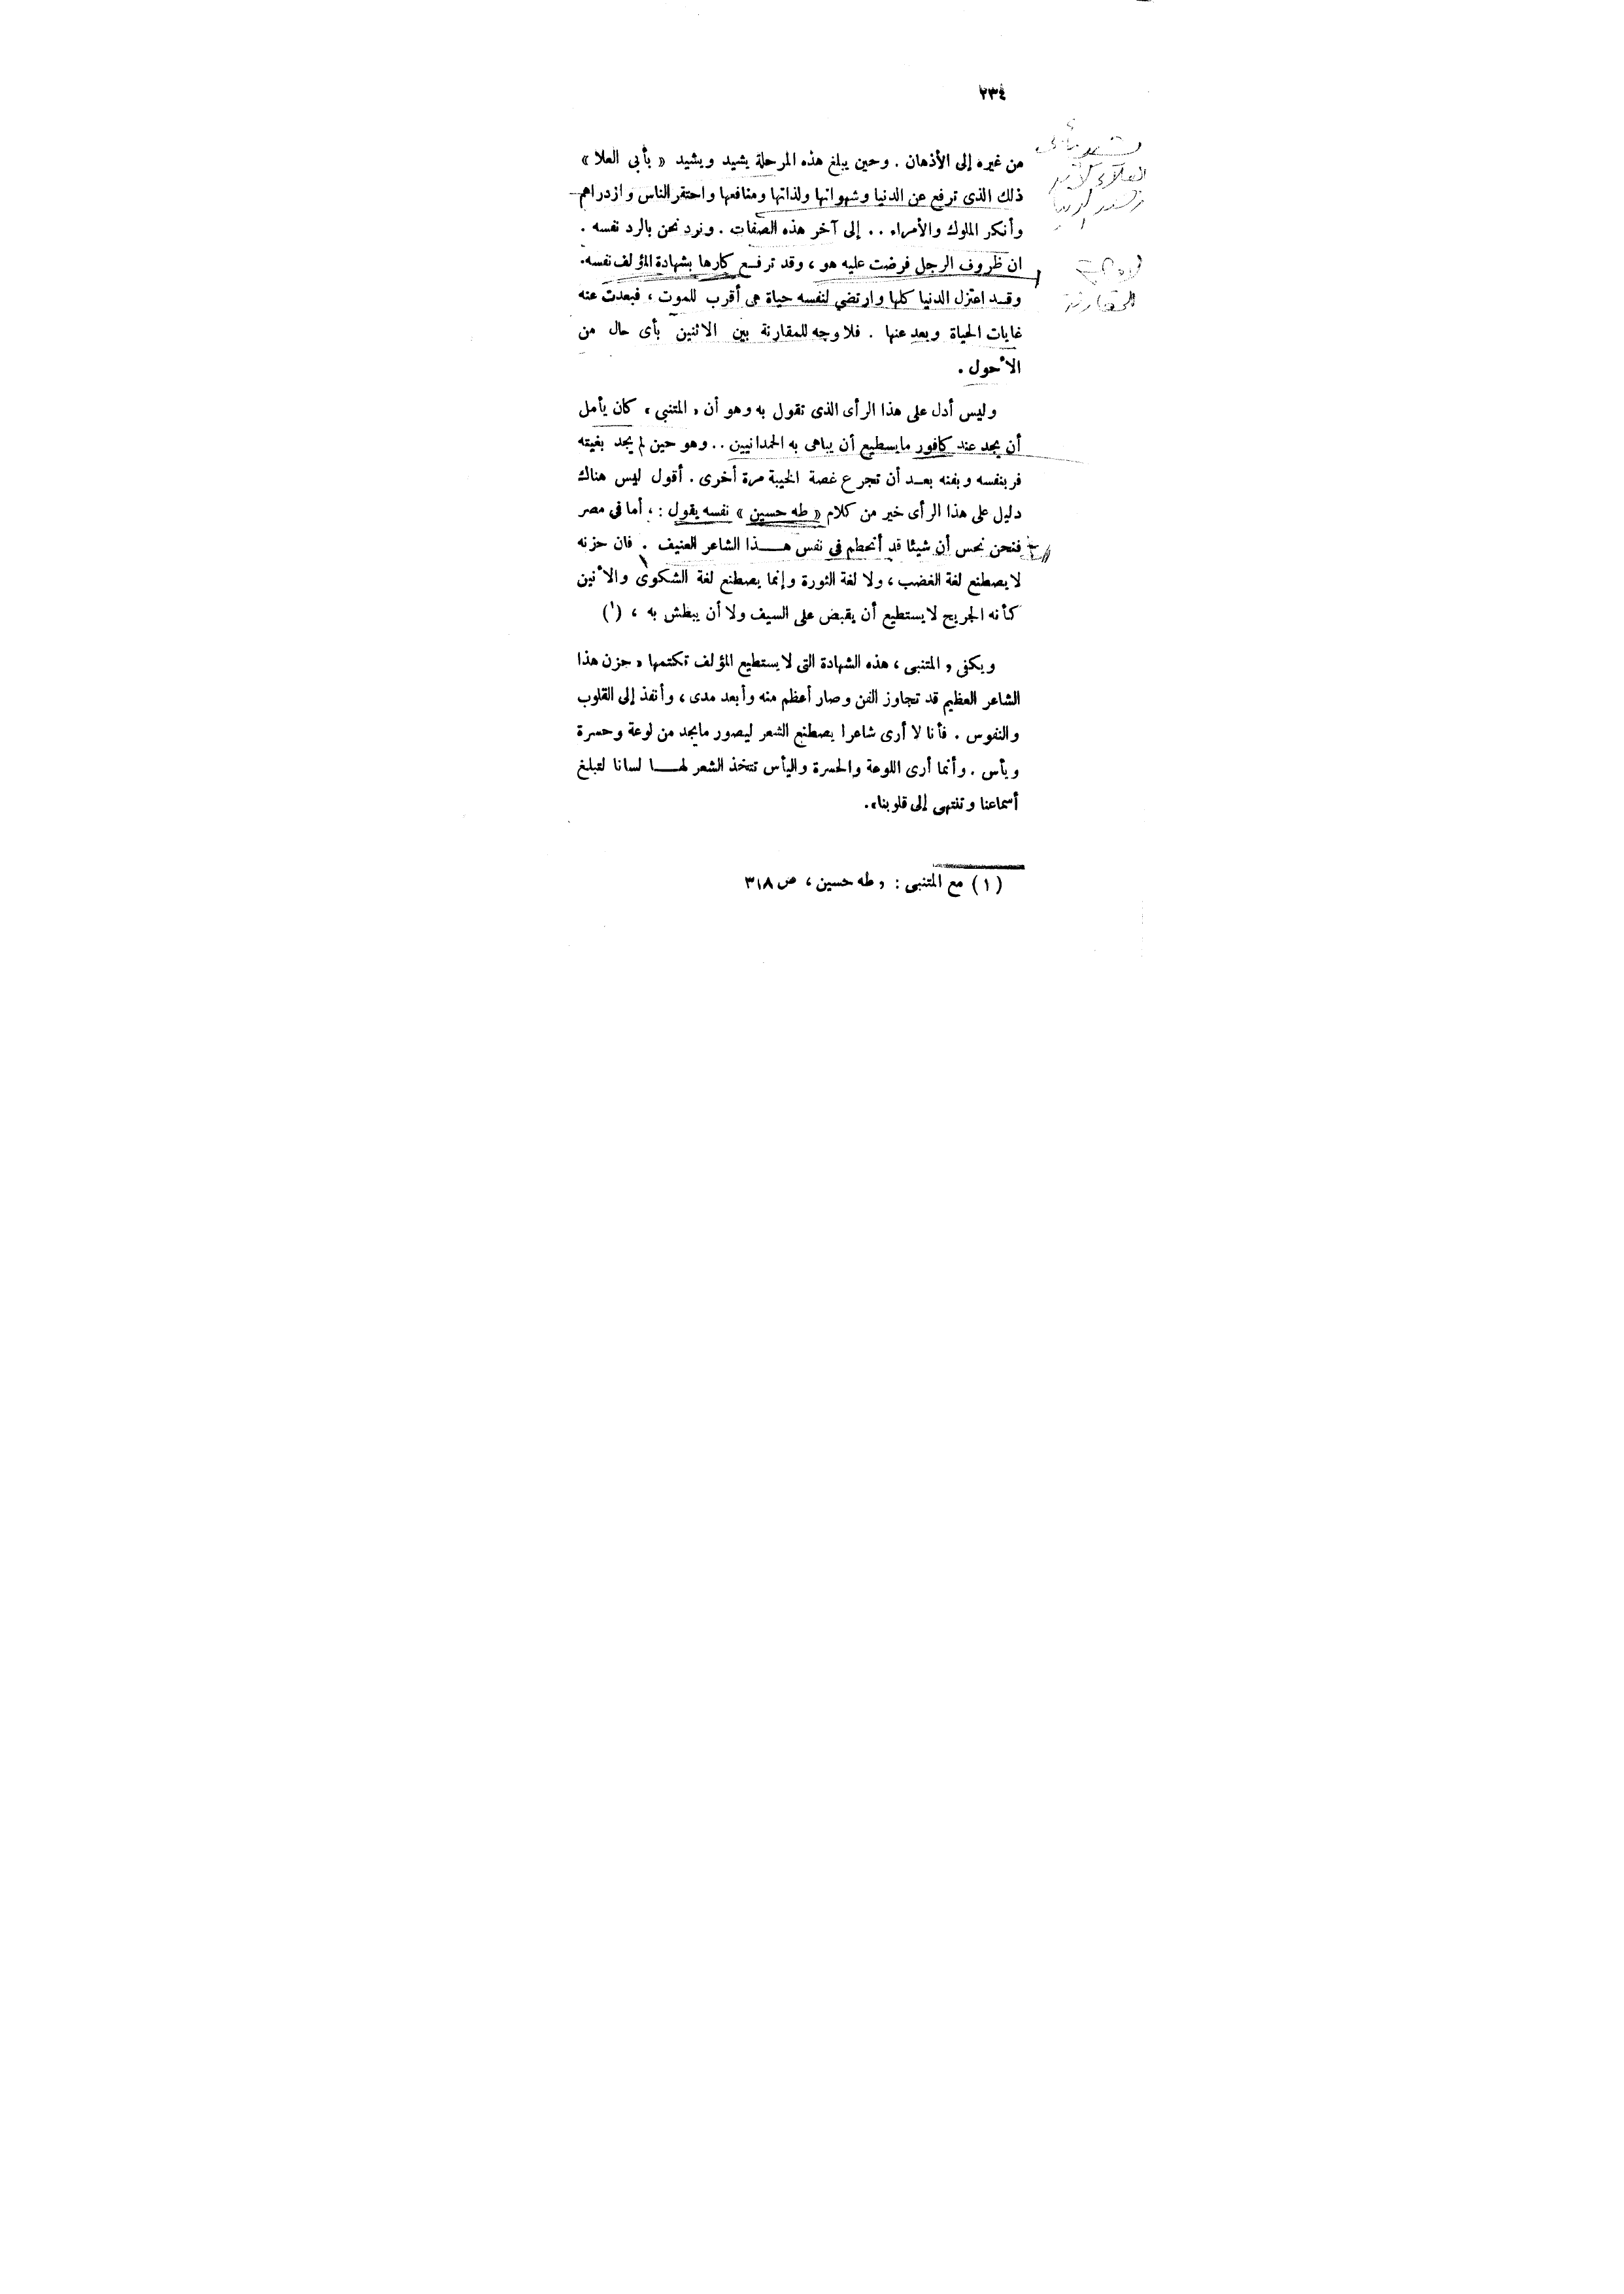 ٢٣٤
من غيره إلى الأذهان . وحين يبلغ هذه المرحلة يشيد ويشيد « بأبى العلا »
ذلك الذى ترفع عن الدنيا وشهواتها ولذاتها ومنافعها واحتقر الناس وازدراهم
وأنكر الملوك والأمراء .. إلى آخر هذه الصفات . ونرد نحن بالرد نفسه .
ان ظروف الرجل فرضت عليه هو ، وقد ترفع كارها بشهادة المؤلف نفسه.
وقد اعتزل الدنيا كلها وارتضي لنفسه حياة هى أقرب للموت ، فبعدت عنه
غايات الحياة وبعد عنها . فلا وجه للمقارنة بين الاثنين بأى حال من
الأحول .
وليس أدل على هذا الرأى الذى نقول به وهو أن « المتنبى » كان يأمل
أن يجد عند كافور مايسطيع أن يباهى به الحمدانيين .. وهو حين لم يجد بغيته
فر بنفسه وبفنه بعد أن تجرع غصة الخيبة مرة أخرى . أقول ليس هناك
دليل على هذا الرأى خير من كلام « طه حسين » نفسه يقول : « أما فى مصر
فنحن نحس أن شيئا قد أنحطم فى نفس هذا الشاعر العنيف . فان حزنه
لا يصطنع لغة الغضب ، ولا لغة الثورة وإنما يصطنع لغة الشكوى والأنين
كأنه الجريح لا يستطيع أن يقبض على السيف ولا أن يبطش به » (١)
ويكفى « المتنبى » هذه الشهادة التى لا يستطيع المؤلف تكتمها « حزن هذا
الشاعر العظيم قد تجاوز الفن وصار أعظم منه وأبعد مدى ، وأنفذ إلى القلوب
والنفوس . فأنا لا أرى شاعرا يصطنع الشعر ليصور مايجد من لوعة وحسرة
ويأس . وأنما أرى اللوعة والحسرة واليأس تتخذ الشعر لها لسانا لتبلغ
أسماعنا وتنتهى إلى قلوبنا».
(١) مع المتنبى : « طه حسين » ص ٣١٨
العلاء
لا وجه
للمقارنة